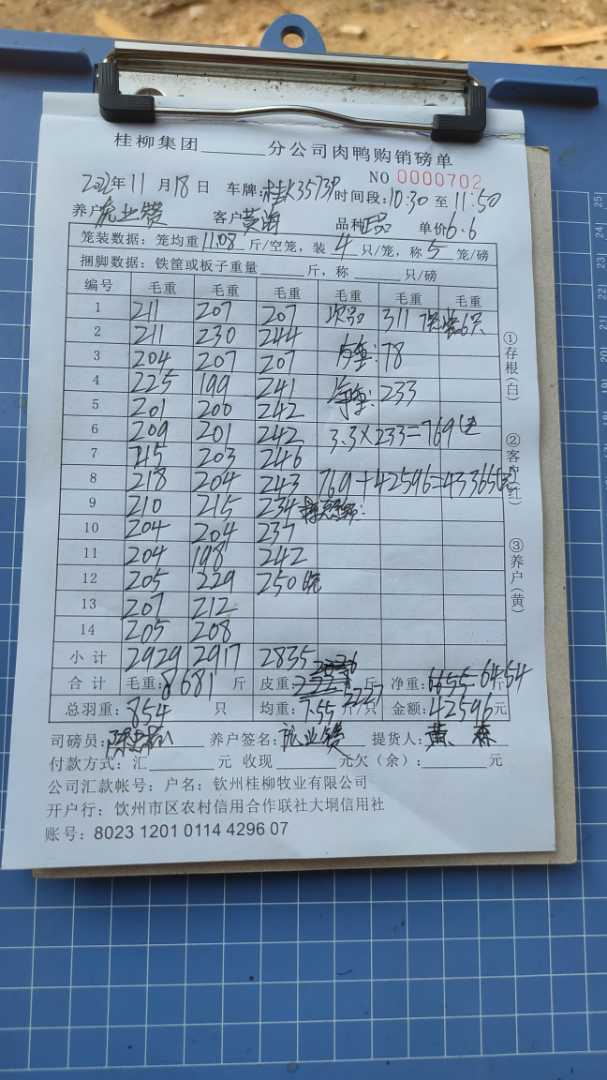 桂柳集团______分公司肉鸭购销磅单
NO 0000702
2022年11月18日 车牌:桂K3573P 时间段:10:30至11:50
养户 业赞 客户 黄海 品种 正品 单价6.6
笼装数据:笼均重11.08斤/空笼,装4只/笼,称5笼/磅
捆脚数据:铁筐或板子重量______斤,称______只/磅
编号 毛重 毛重 毛重 毛重 毛重 毛重
1 211 207 207 次品 311 7笼装6只
2 211 230 244
3 204 207 207 皮重:78
4 225 199 241 净重:233
5 201 200 242
6 209 201 242 3.3×233=769元
7 145 203 246
8 218 204 243 769+42596=43365元
9 210 215 234
10 204 204 237
11 204 198 242
12 205 229 250
13 207 212
14 205 208
小计 2929 2917 2835
合计 毛重:8681斤 皮重:2227斤 净重:6454斤
总羽重:854只 均重:7.55斤/只 金额:42596元
司磅员: 养户签名: 业赞 提货人:黄 森
付款方式:汇______元 收现______元欠(余):______元
公司汇款帐号:户名:钦州桂柳牧业有限公司
开户行:钦州市区农村信用合作联社大垌信用社
账号:8023 1201 0114 4296 07
①存根(白)
②客户(红)
③养户(黄)